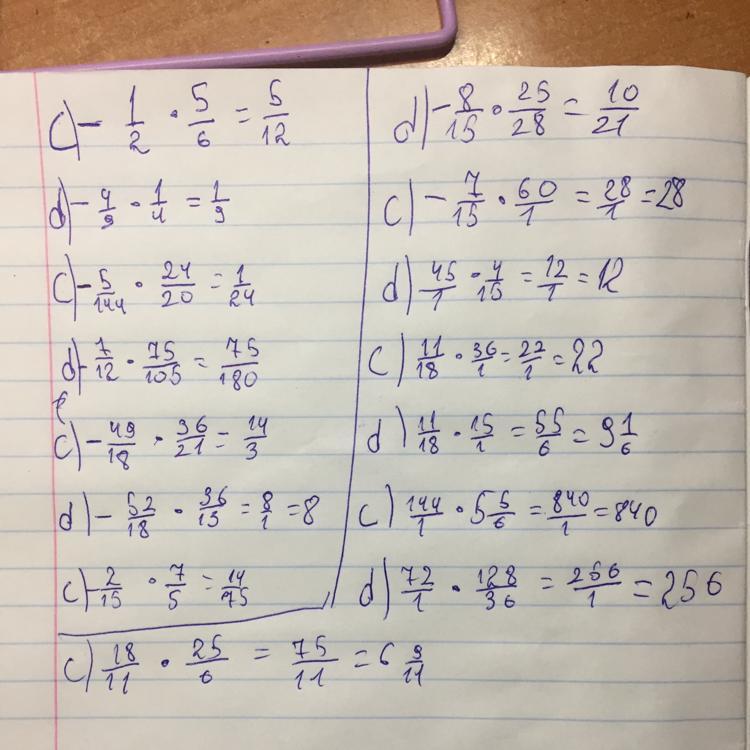 c) - 1/2 · 5/6 = 5/12
d) - 4/9 · 1/4 = 1/9
c) - 5/144 · 24/20 = 1/24
d) - 7/12 · 75/105 = 75/180
c) - 49/18 · 36/21 = 14/3
d) - 52/18 · 36/13 = 8/1 = 8
c) - 2/15 · 7/5 = 14/75
c) 18/11 · 25/6 = 75/11 = 6 9/11
d) - 8/15 · 25/28 = 10/21
c) - 7/15 · 60/1 = 28/1 = 28
d) 45/1 · 4/15 = 12/1 = 12
c) 11/18 · 36/1 = 22/1 = 22
d) 11/18 · 15/1 = 55/6 = 9 1/6
c) 144/1 · 5 5/6 = 840/1 = 840
d) 72/1 · 128/36 = 256/1 = 256